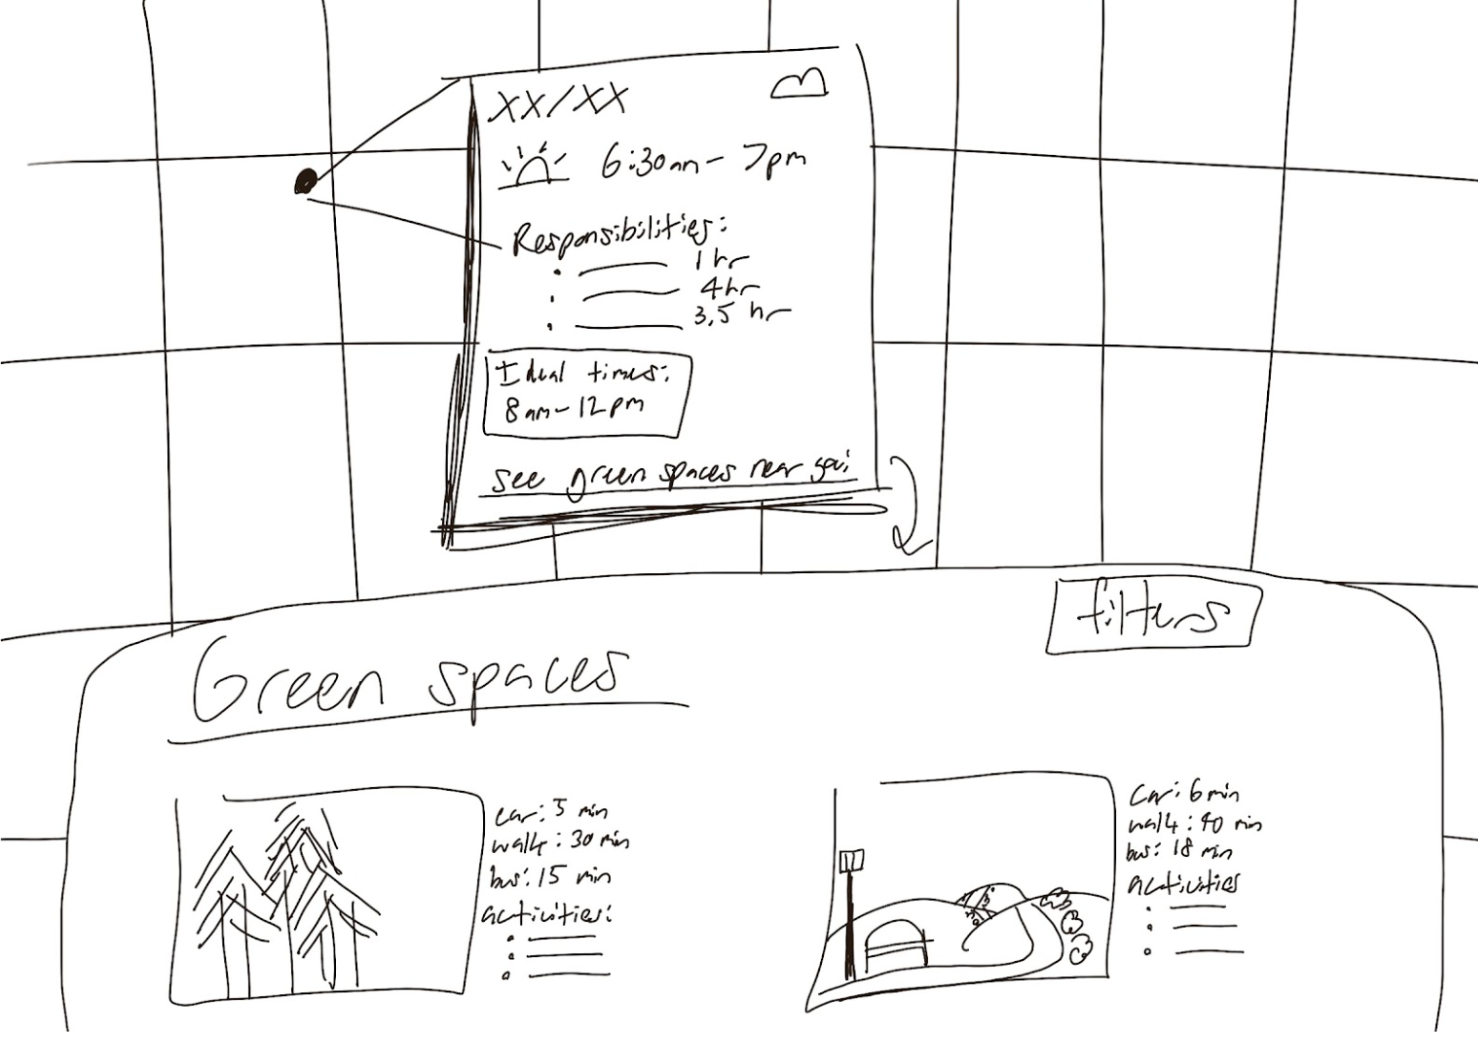 XX/XX
6:30am - 7pm
Responsibilities:
1 hr
4 hr
3,5 hr
Ideal times:
8am - 12pm
see green spaces near you:
filters
Green spaces
car: 5 min
walk: 30 min
bus: 15 min
activities:
Car: 6 min
walk: 40 min
bus: 18 min
activities